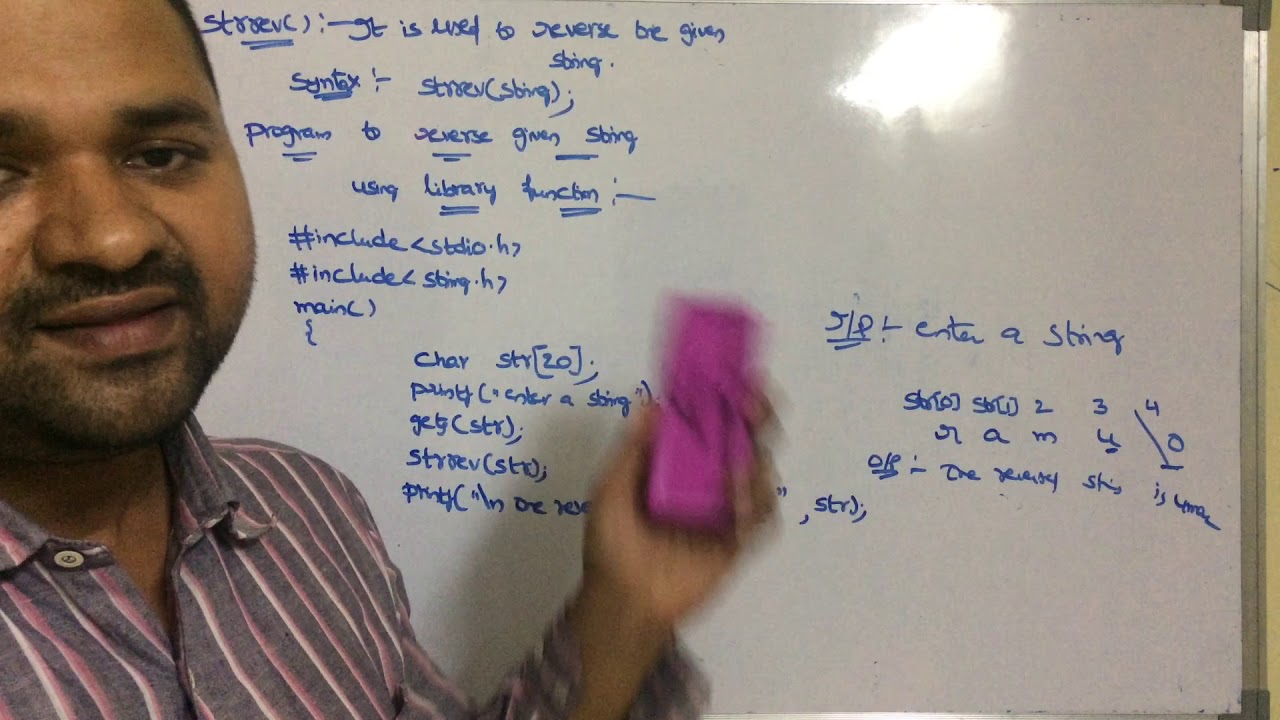 strrev( ) :- It is used to reverse the given
string.
Syntax :- strrev(string);
Program to reverse given string
using library function :-
#include<stdio.h>
#include<string.h>
main( )
{
char str[20];
printf("enter a string")
gets(str);
strrev(str);
printf("\n the reve ", str);
I/P :- enter a string
str[0] str[1] 2 3 4
r a m u \0
O/P :- The reversed string is umar